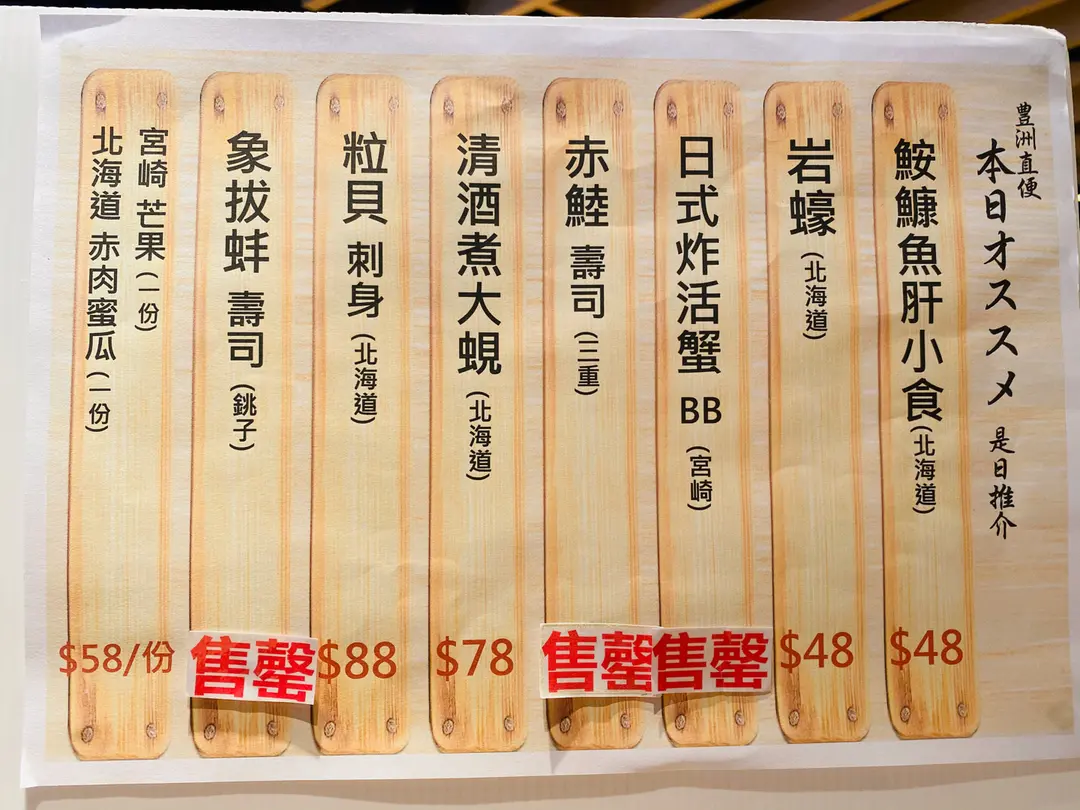 豊洲直便
本日オススメ 是日推介
鮟鱇魚肝小食(北海道)
$48
岩蠔(北海道)
$48
日式炸活蟹 BB (宮崎)
售罄
赤鯥 壽司(三重)
售罄
清酒煮大蜆(北海道)
$78
粒貝 刺身(北海道)
$88
象拔蚌 壽司(銚子)
售罄
宮崎 芒果(一份)
北海道 赤肉蜜瓜(一份)
$58/份